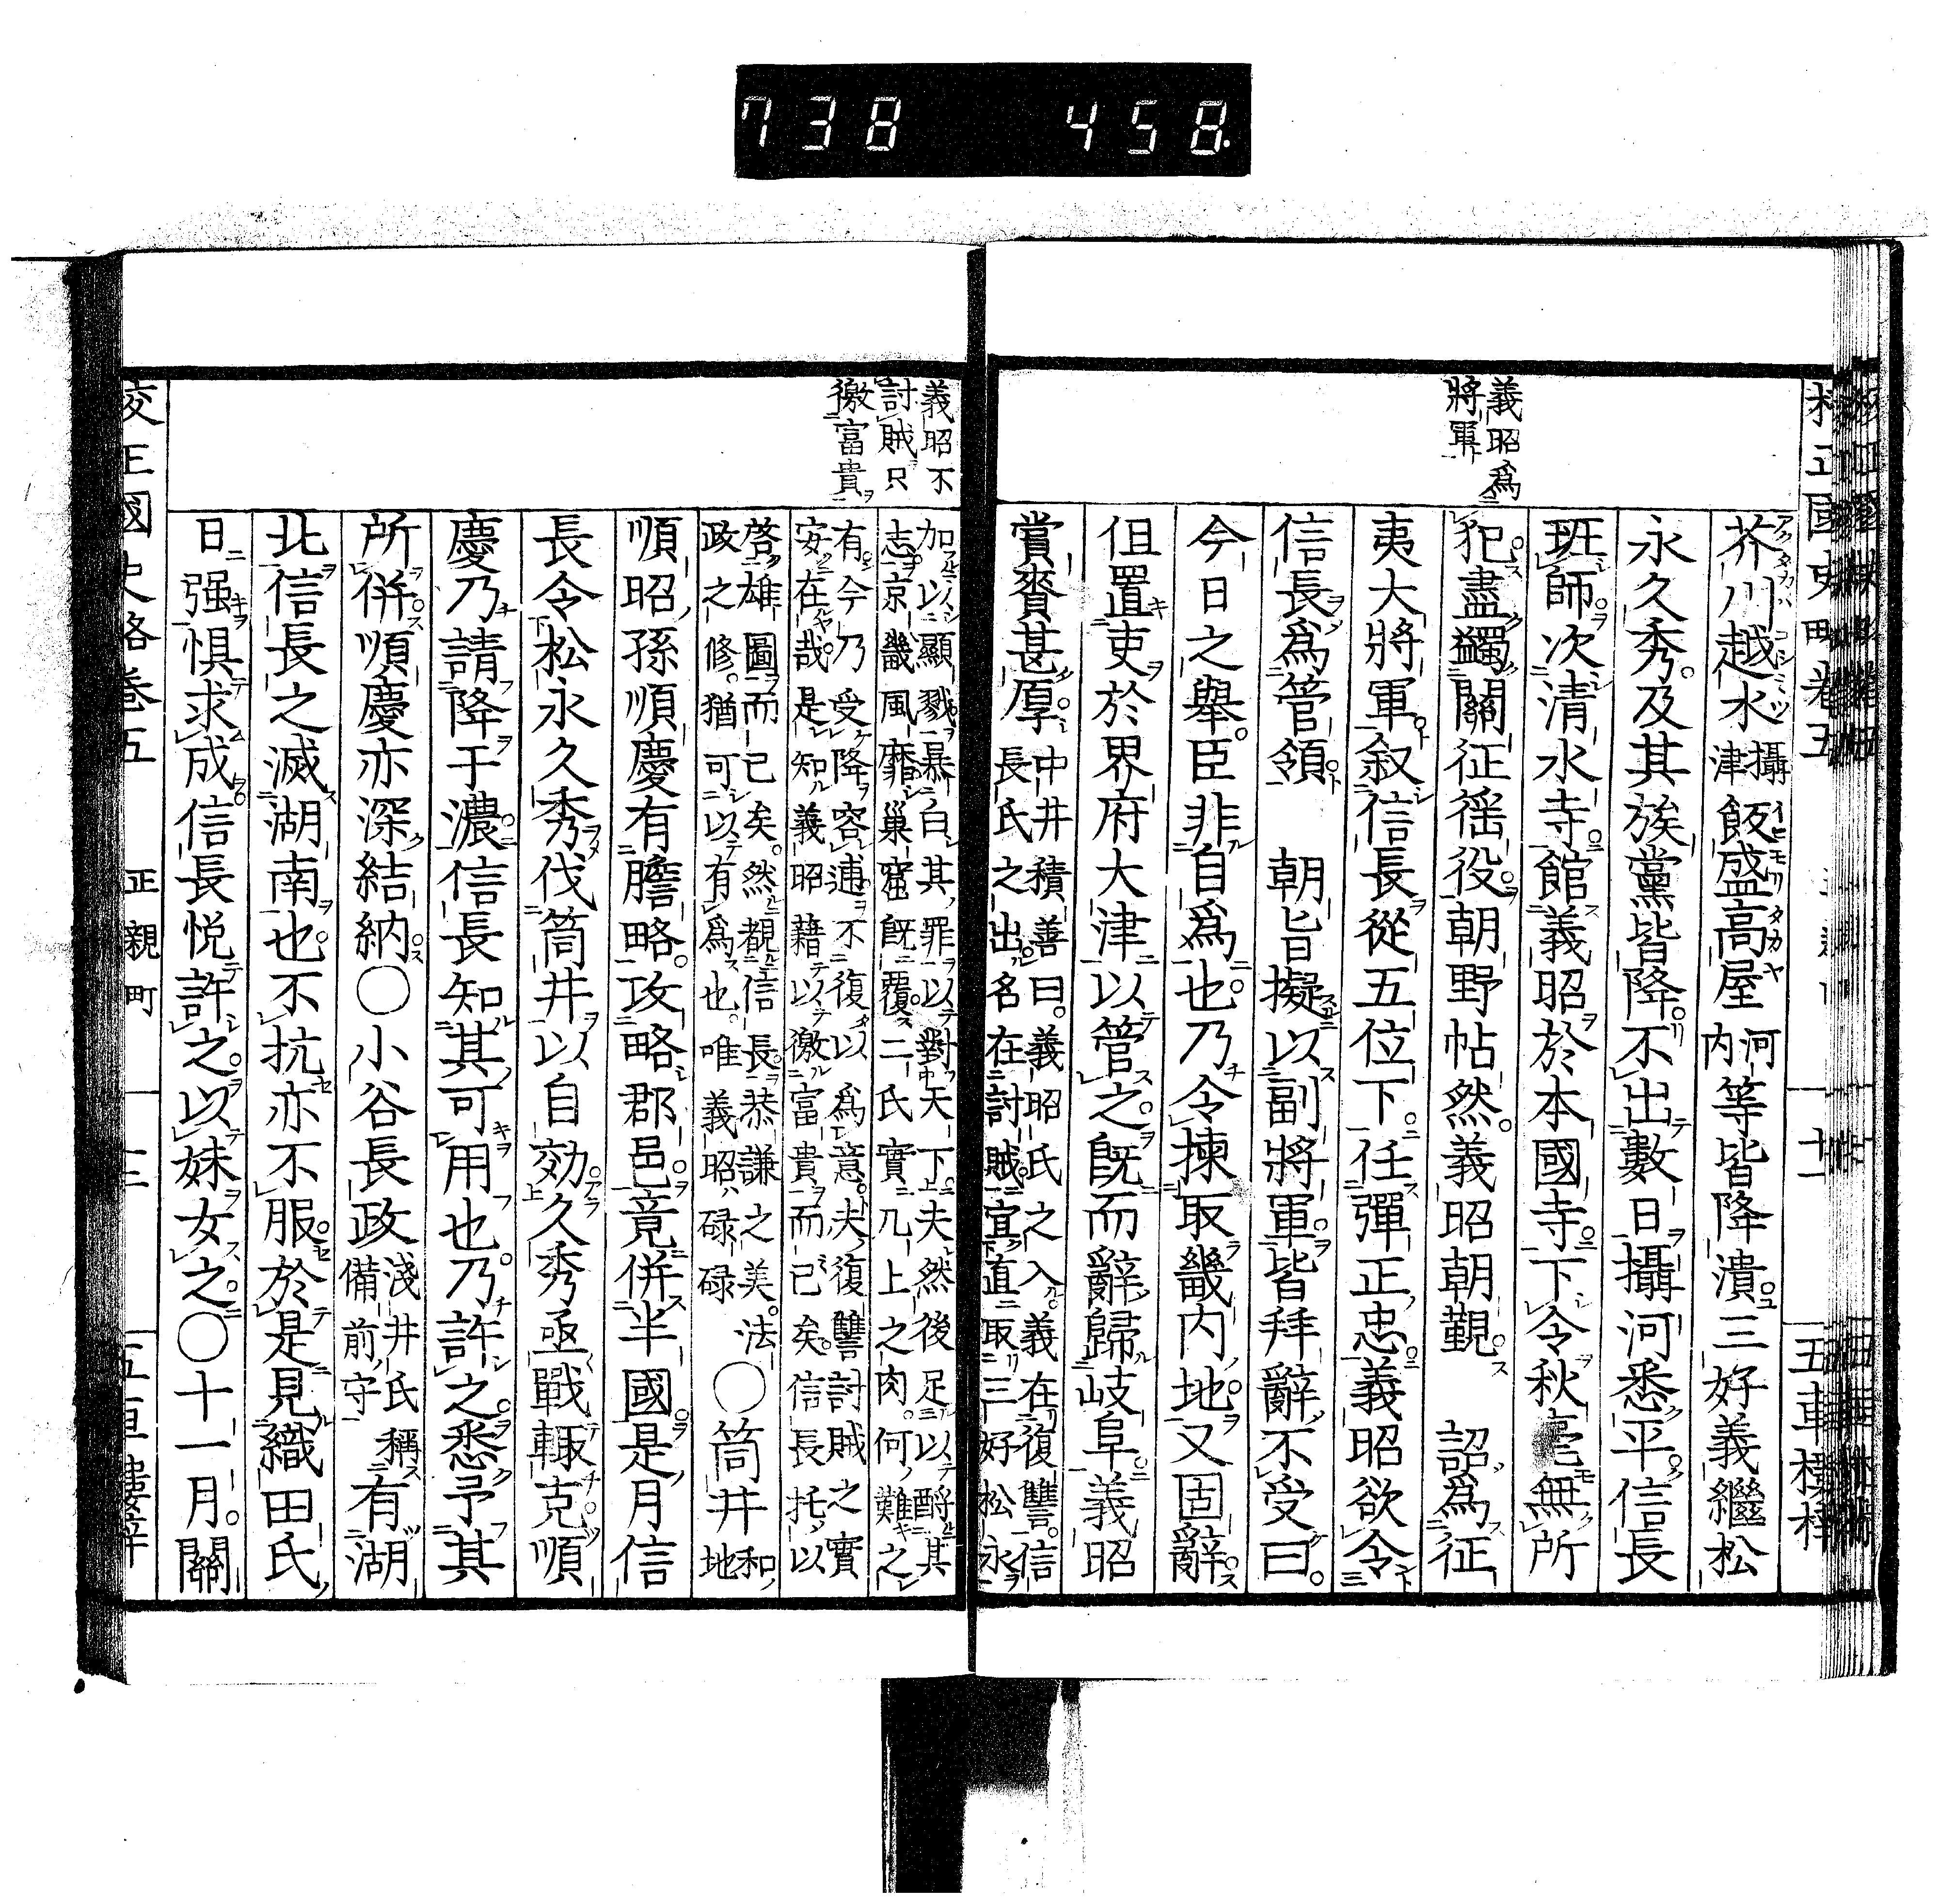 738 458.
義昭爲
將軍
芥川越水攝津飯盛高屋河内等皆降潰三好義繼松
永久秀及其族黨皆降不出數日攝河悉平信長
班師次清水寺館義昭於本國寺下令秋毫無所
犯盡蠲關征徭役朝野帖然義昭朝覲 詔爲征
夷大將軍叙信長從五位下任彈正忠義昭欲令
信長爲管領 朝旨擬以副將軍皆拜辭不受曰
今日之舉臣非自爲也乃令揀取畿内地又固辭
但置吏於界府大津以管之既而辭歸岐阜義昭
賞賚甚厚中井積善曰義昭氏之入義在復讐信
長氏之出名在討賊宜直取三好松永
義昭不
討賊只
徼富貴
加以顯戮暴白其罪以對天下夫然後足以酹其
志京畿風靡巢窟既覆二氏實几上之肉何難之
有今乃受降容逋不復以爲意夫復讐討賊之實
安在哉是知義昭藉以徼富貴而已矣信長托以
啓雄圖而已矣然觀信長恭謙之美法
政之修猶可以有爲也唯義昭碌碌○筒井和地
順昭孫順慶有膽略攻略郡邑竟併半國是月信
長令松永久秀伐筒井以自効久秀亟戰輙克順
慶乃請降于濃信長知其可用也乃許之悉予其
所併順慶亦深結納○小谷長政淺井氏稱備前守有湖
北信長之滅湖南也不抗亦不服於是見織田氏
日强惧求成信長悦許之以妹女之○十一月關
校正國史略卷五 正親町 十三 五車樓梓